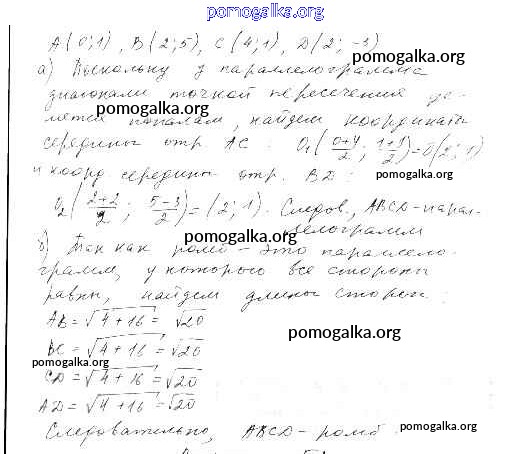 pomogalka.org
A(0;1), B(2;5), C(4;1), D(2;-3)
pomogalka.org
а) Поскольку у параллелограмма
диагонали точкой пересечения де-
pomogalka.org
лятся пополам, найдем координаты
середины отр. AC: O₁(0+4/2; 1+1/2)=O(2;1)
и коорд середины отр. BD:
pomogalka.org
O₂(2+2/2; 5-3/2)=(2;1). Следов., ABCD-парал-
лелограмм
pomogalka.org
б) Так как ромб - это параллело-
грамм, у которого все стороны
равны, найдем длины сторон:
AB=√4+16=√20
pomogalka.org
BC=√4+16=√20
pomogalka.org
CD=√4+16=√20
AD=√4+16=√20
Следовательно, ABCD-ромб.
pomogalka.org